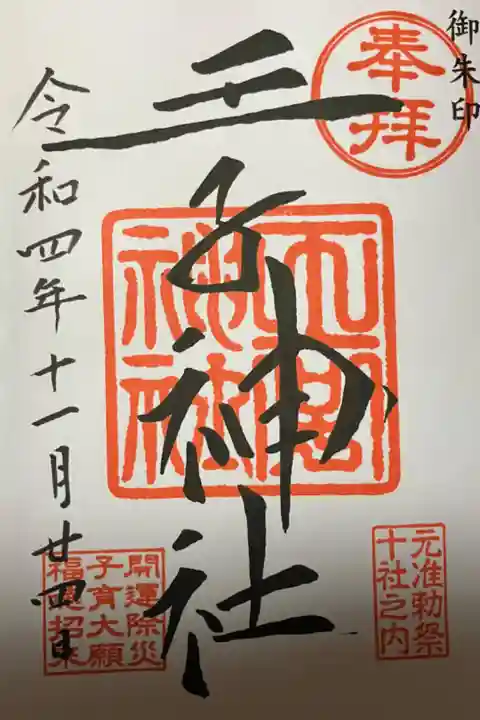 御朱印
奉拝
王子神社
元准勅祭
十社之内
開運除災
子育大願
福運招来
令和四年十一月廿四日